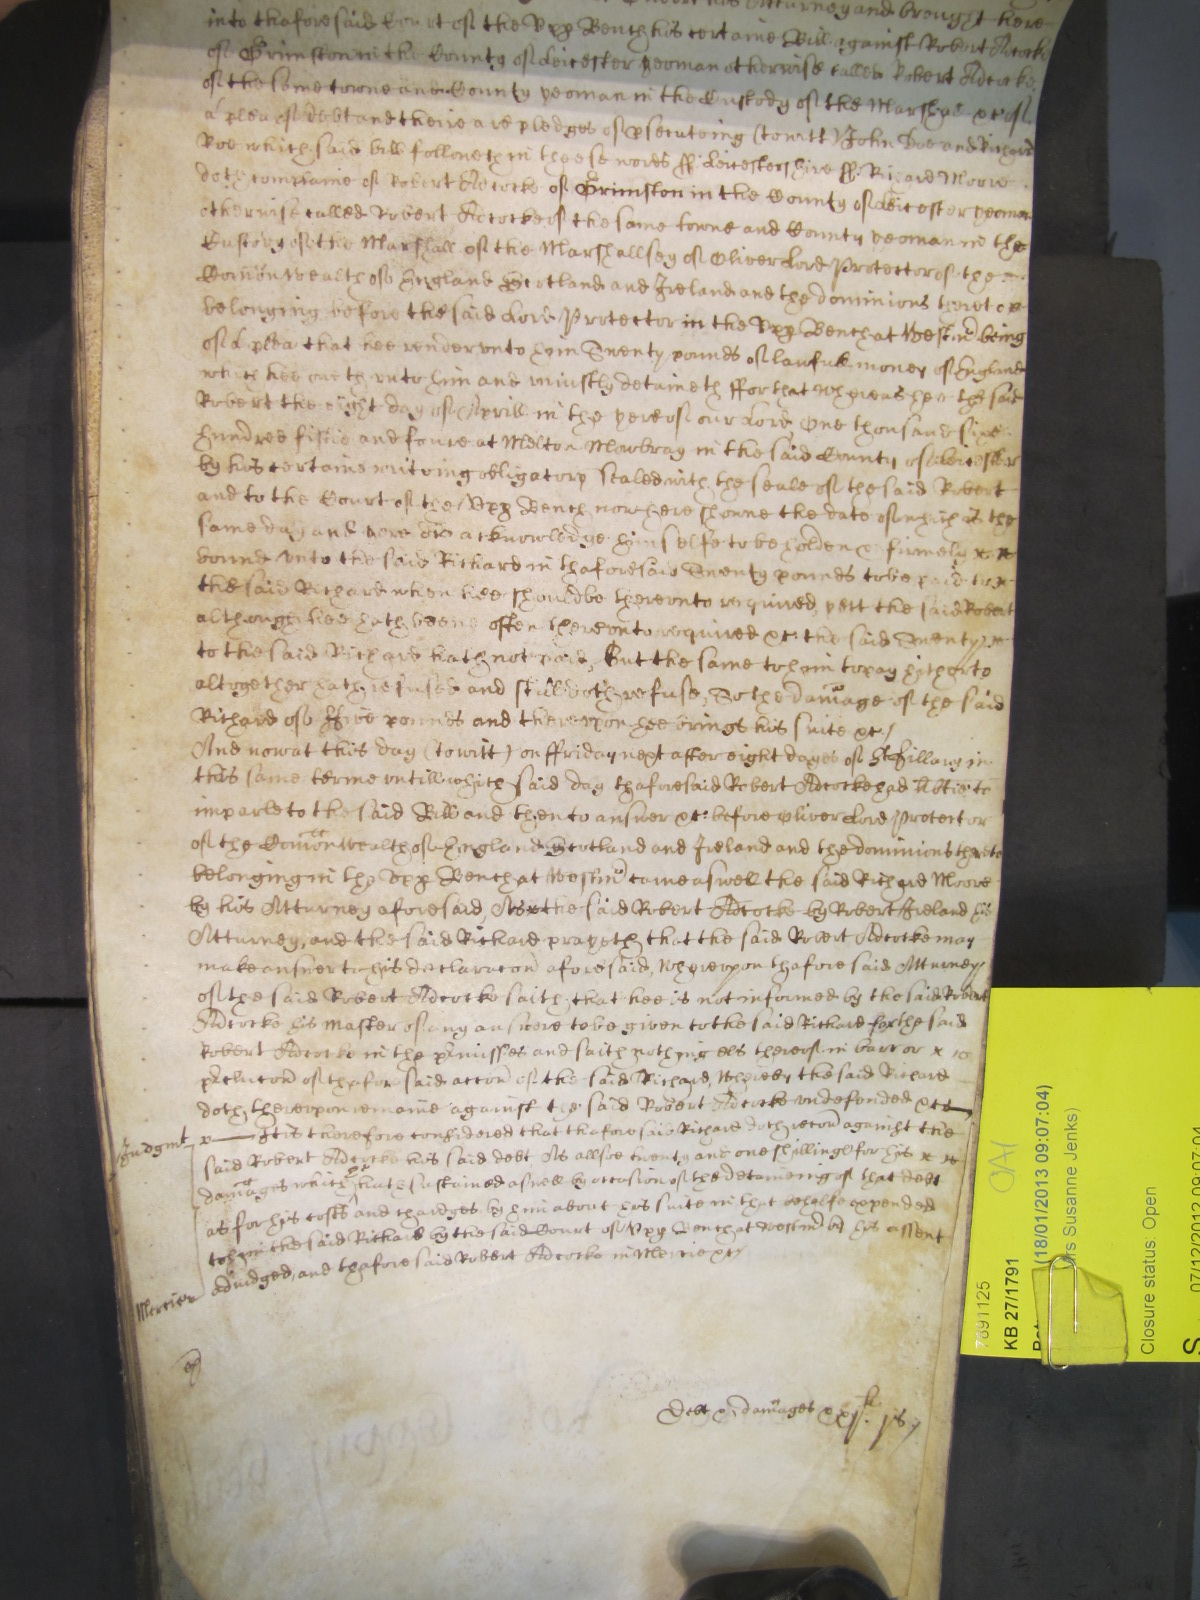 his Atturney and brought here
into thaforesaid Court of the Vpp Bench his certaine Bill against Robert Adcocke
of Grimston in the County of Leicester yeoman otherwise called Robert Adcocke
of the same towne and County yeoman in the Custody of the Marshall &c of
a plea of debt and there are pledges of psecutoing (to witt) John Doe and Richard
Roe which said bill followeth in theese words ss Leicestershire ss Richard Moore
doth complaine of Robert Adcocke of Grimston in the County of Leicester yeoman
otherwise called Robert Adcocke of the same towne and County yeoman in the
Custody of the Marshall of the Marshallsey of Oliver Lord Protector of the
Comonwealth of England Scotland and Ireland and the dominions thereto
belonging before the said Lord Protector in the Vpp Bench at Westmr being
of a plea that hee render vnto him Twenty pounds of lawfull money of England
which hee oweth vnto him and vniustly detaineth ffor that Whereas hee the said
Robert the eight day of Aprill in the yere of our Lord One thousand sixe
hundred fiftie and foure at Melton Mowbray in the said County of Leicester
by his certaine writing obligatory sealed with the seale of the said Robert
and to the Court of the Vpp Bench now here showne the date of which is the
same day and yere did acknowledge himselfe to be holden & firmely
bound vnto the said Richard in thaforesaid Twenty pounds to be paid to
the said Richard when hee should be therevnto required, yett the said Robert
although hee hath beene often therevnto required &c the said Twenty
to the said Richard hath not paid, But the same to him to pay hitherto
altogether hath refused and still doth refuse, To the damage of the said
Richard of ffive pounds and therevpon hee brings his suite &c/
And now at this day (to witt) on ffriday next after eight dayes of St Hillary in
this same terme vntill which said day thaforesaid Robert Adcocke had to
imparle to the said Bill and then to answer &c before Oliver Lord Protector
of the Comonwealth of England Scotland and Ireland and the dominions thereto
belonging in the Vpp Bench at Westmr came aswell the said Richard Moore
by his Atturney aforesaid, As the said Robert Adcocke by Robert Ireland his
Atturney, and the said Richard prayeth that the said Robert Adcocke may
make answer to his declaracon aforesaid, Wherevpon thaforesaid Atturney
of the said Robert Adcocke saith that hee is not informed by the said Robert
Adcocke his Master of any answere to be given to the said Richard for the said
Robert Adcocke in the pmisses and saith nothing els thereof in barr or
pclucon of thaforesaid accon of the said Richard, Whereby the said Richard
doth therevpon remaine against the said Robert Adcocke vndefended &c
Judgmt It is therefore considered that thaforesaid Richard doth recou against the
said Robert Adcocke his said debt As alsoe twenty and one shillings for his
damages which hee hath sustained aswell by occasion of the detaineing of that debt
as for his costs and chardges by him about his suite in that behalfe expended
to him the said Richard by the said Court of Vpp Bench at Westmr by his assent
adiudged, and thaforesaid Robert Adcocke in Mercie &c/
Mercie
Debt & damages xxj li js
7891125
KB 27/1791
(18/01/2013 09:07:04)
rs Susanne Jenks)
Closure status: Open
07/12/2012 09:07:04